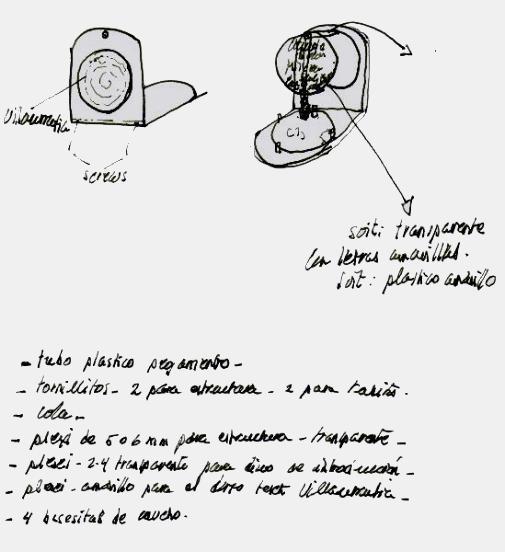 Villaumatia
screws
soit: transparente
Con letras amarillas.
Soit: plastico amarillo
- tubo plastico pegamento -
- tornillitos - 2 para estructura - 2 para
- cola -
- plexi de 5 o 6 mm para estructura - transparente -
- plexi - 2-4 transparente para disco de
- plexi - amarillo para el disco text Villaumatia -
- 4 de caucho.